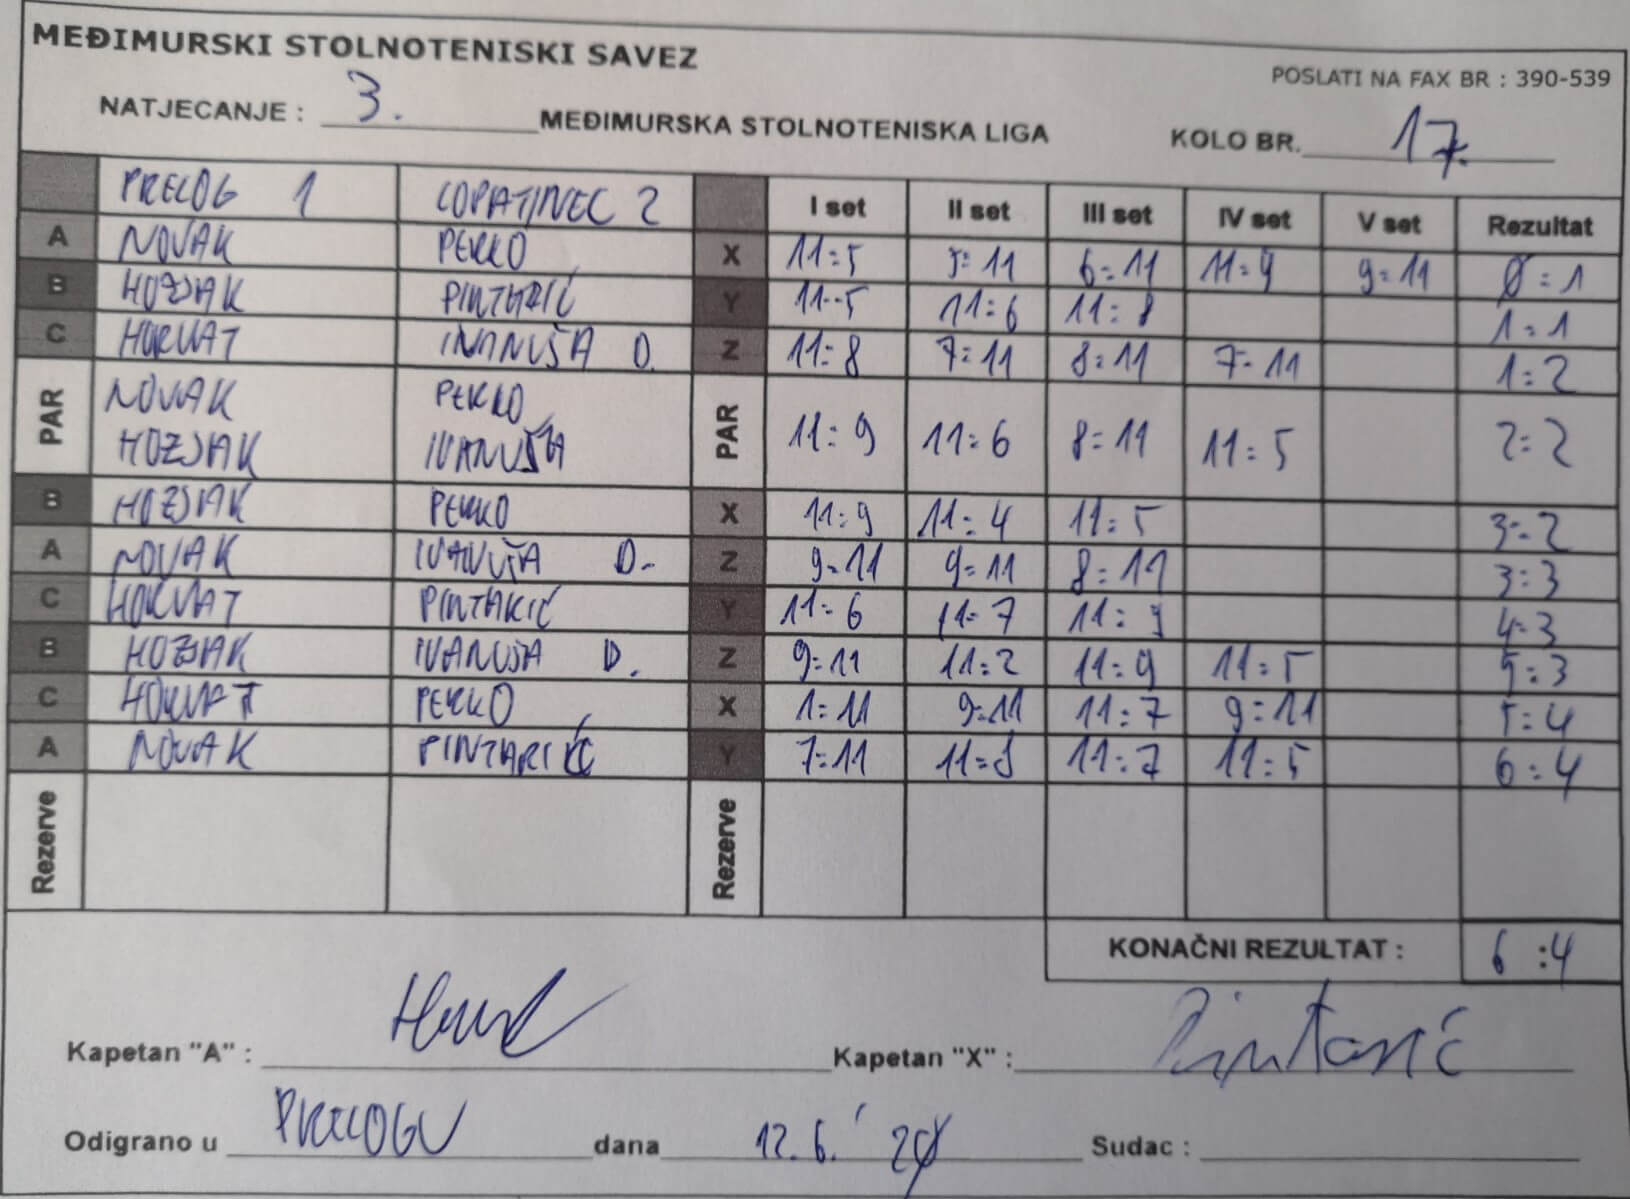 MEĐIMURSKI STOLNOTENISKI SAVEZ
POSLATI NA FAX BR : 390-539
NATJECANJE : 3. MEĐIMURSKA STOLNOTENISKA LIGA KOLO BR. 17.
PRELOG 1 LOPATINEC 2 I set II set III set IV set V set Rezultat
A NOVAK PERKO X 11:5 5:11 6:11 11:9 9:11 0:1
B HOZJAK PINTARIĆ Y 11:5 11:6 11:8 1:1
C HORVAT IVANUŠA D. Z 11:8 7:11 8:11 7:11 1:2
PAR NOVAK PERKO PAR 11:9 11:6 8:11 11:5 2:2
HOZJAK IVANUŠA
B HOZJAK PERKO X 11:9 11:4 11:5 3:2
A NOVAK IVANUŠA D. Z 9:11 9:11 8:11 3:3
C HORVAT PINTARIĆ Y 11:6 11:7 11:9 4:3
B HOZJAK IVANUŠA D. Z 9:11 11:2 11:9 11:5 5:3
C HORVAT PERKO X 1:11 9:11 11:7 9:11 5:4
A NOVAK PINTARIĆ Y 7:11 11:8 11:7 11:5 6:4
Rezerve Rezerve
KONAČNI REZULTAT : 6:4
Kapetan "A" : Kapetan "X" : Pintarić
Odigrano u PRELOGU dana 12.6. Sudac :